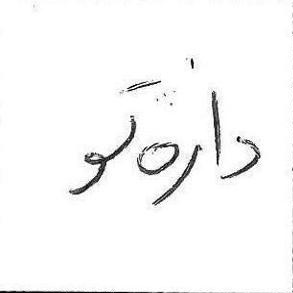 داره گو